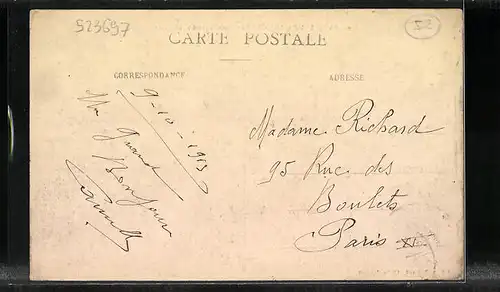 523697
CARTE POSTALE
CORRESPONDANCE
ADRESSE
9-10-1913
Un grand
Bonjour
Madame Richard
95 Rue des
Boulets
Paris XI